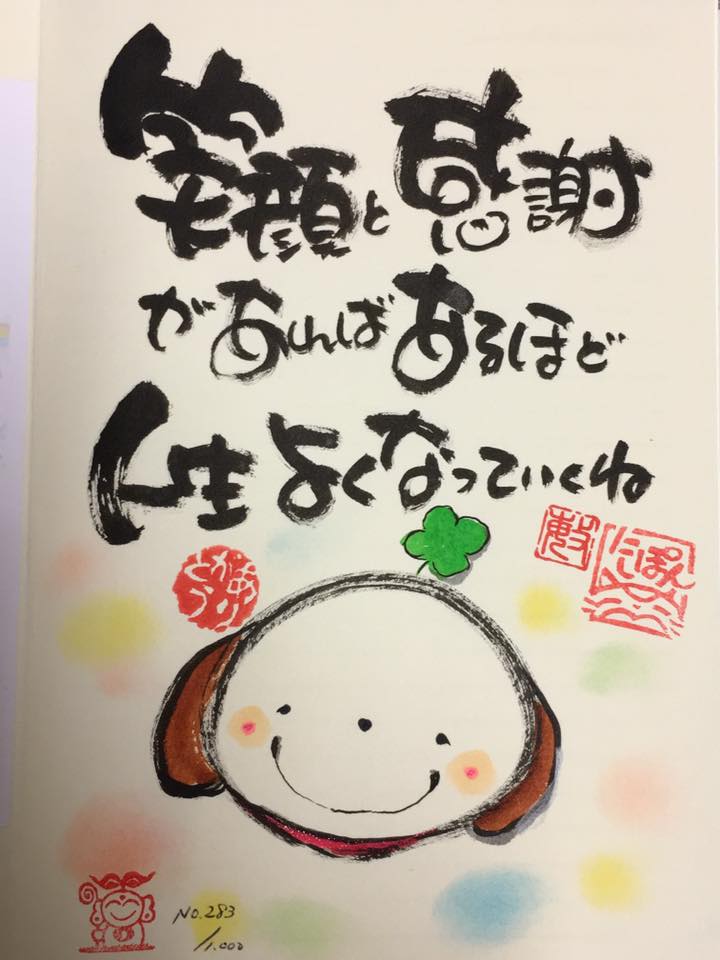 笑顔と感謝
があればあるほど
人生よくなっていくね
にっぽん
No.283
/1.000